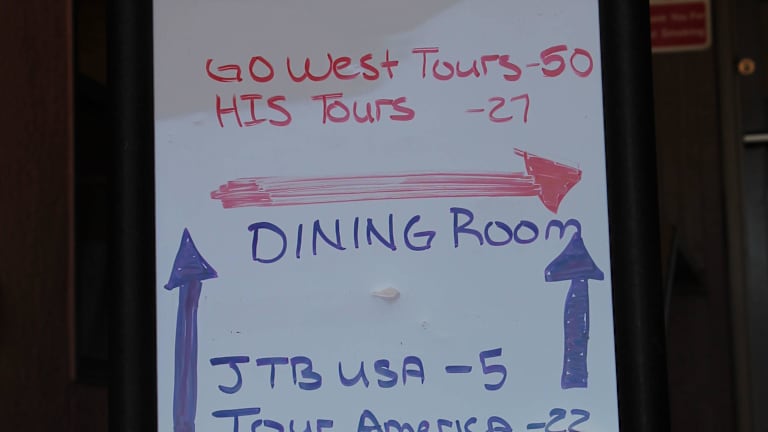 GO West Tours -50
HIS Tours -27
DINING Room
JTB USA -5
Tour America -22